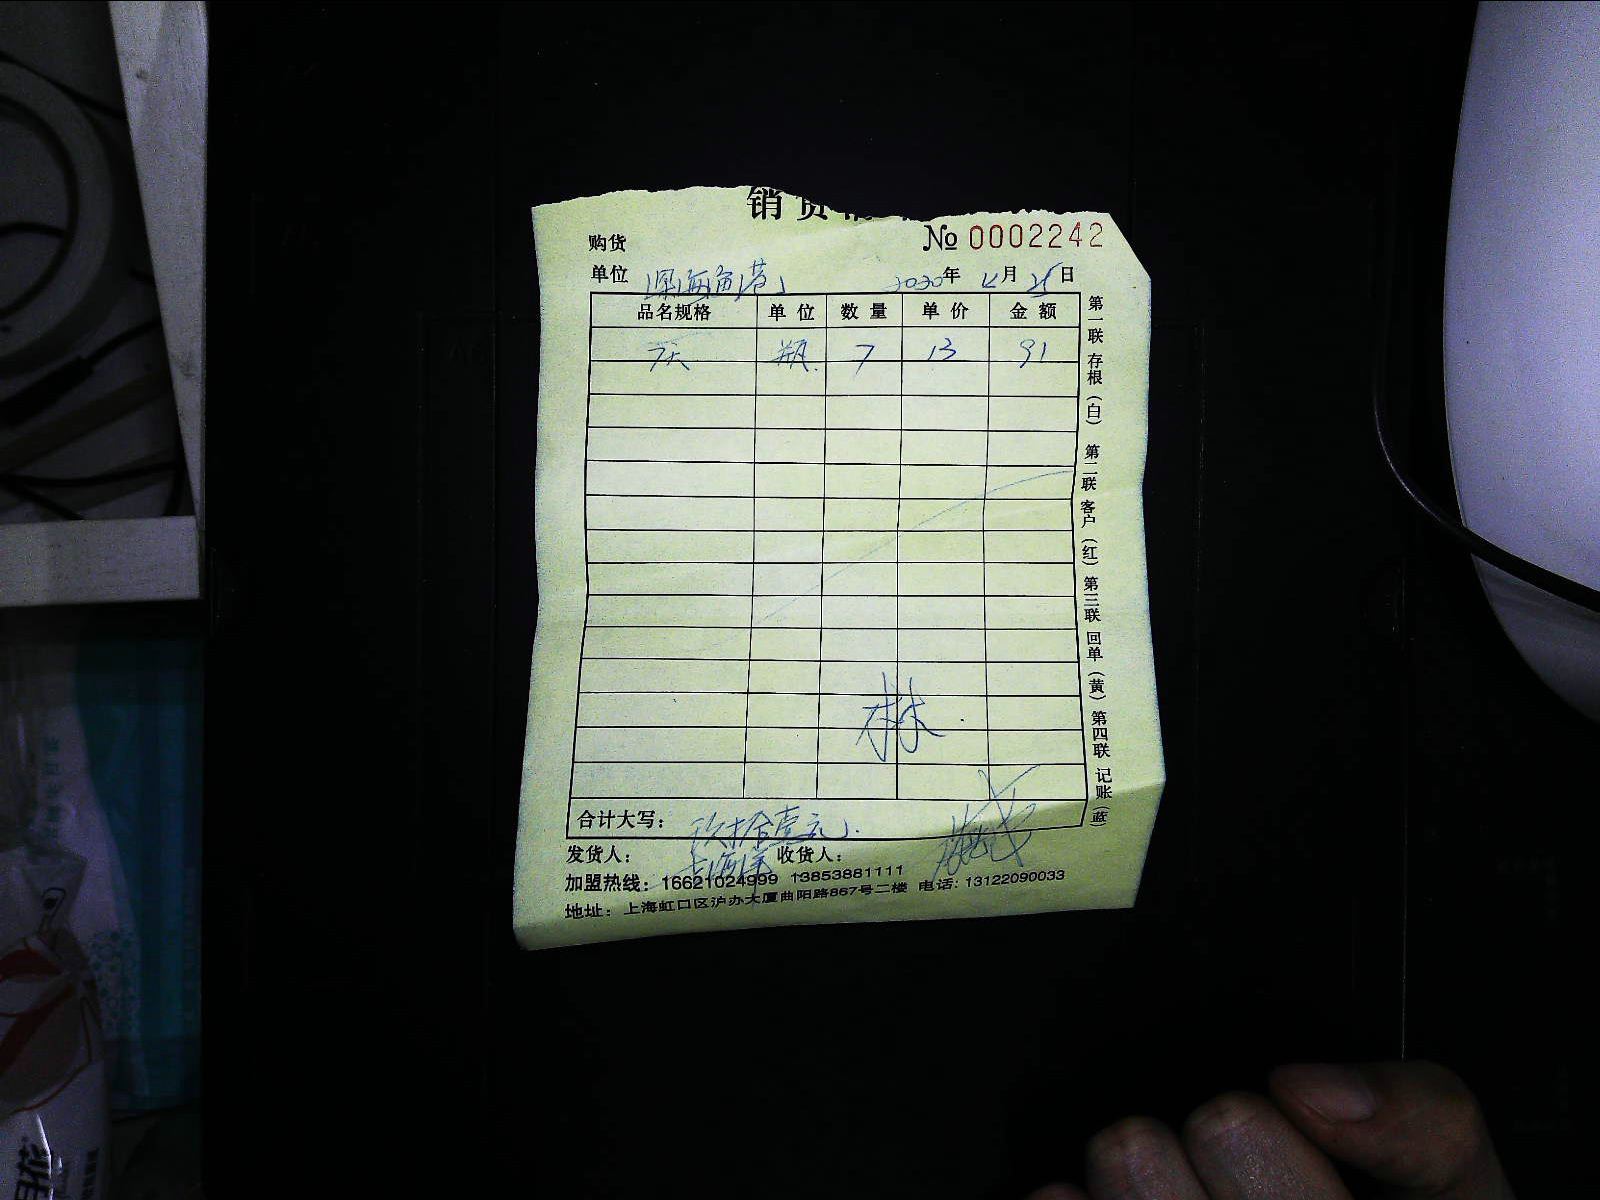 销货清
购货
№ 0002242
单位 深海渔港 2020年 4月 25日
品名规格 单位 数量 单价 金额
瓶 7 13 91
林
合计大写： 玖拾壹元
发货人： 收货人：
加盟热线：16621024999 13853881111
地址：上海虹口区沪办大厦曲阳路867号二楼 电话：13122090033
第一联 存根（白） 第二联 客户（红） 第三联 回单（黄） 第四联 记账（蓝）